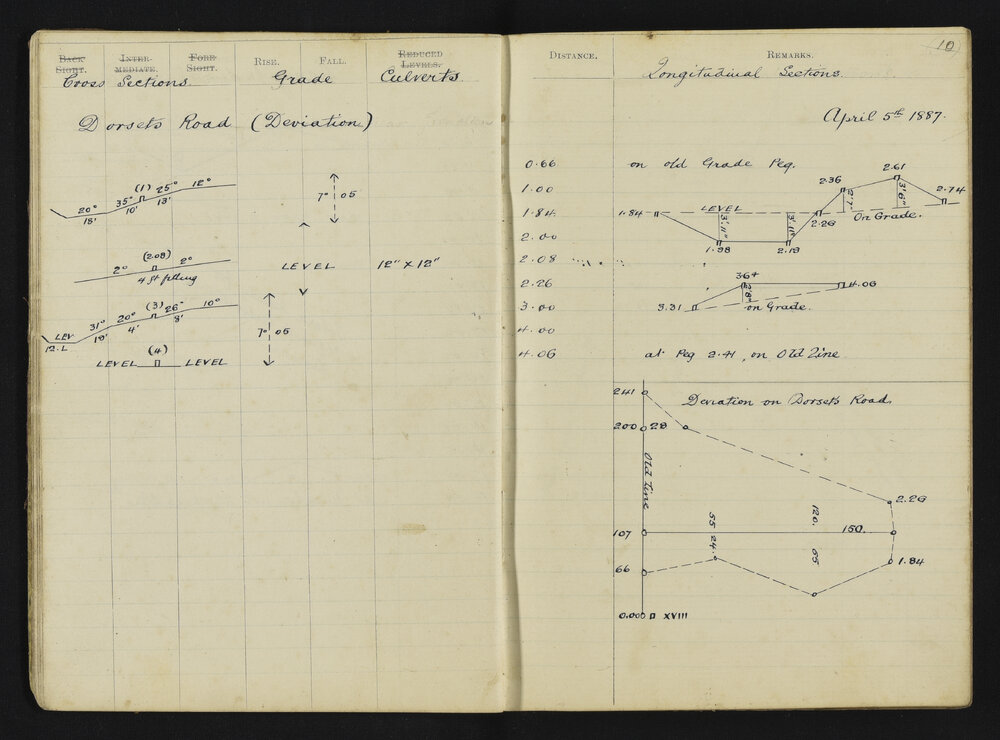 BACK SIGHT. INTER-MEDIATE. FORE SIGHT. RISE. FALL. REDUCED LEVELS.
Cross Sections Grade Culverts.
Dorsets Road (Deviation)
(1) 25° 12°
20° 35°
15' 10' 13'
7° 05
(2.08)
2° 2°
4 ft filling
LEVEL 12" × 12"
(3) 26° 10°
31° 20°
LEV 19' 4' 8'
12.L
7° 05
(4)
LEVEL LEVEL
10
DISTANCE. REMARKS.
Longitudinal Sections.
April 5th 1887.
0.66 on old Grade Peg.
1.00
1.84
2.00
2.08
2.26
3.00
4.00
4.06 at Peg 2.41, on Old Line
2.61
2.36 2.74
1.84 LEVEL 2'.7" 3'6"
3'.11" 3'.11" 2.26 On Grade.
1.98 2.19
364 4.06
2'8"
3.31 on Grade.
241 Deviation on Dorsets Road.
200 28
Old Line
2.26
55 120.
107 150.
24. 65
66 1.84
0.000 XVIII